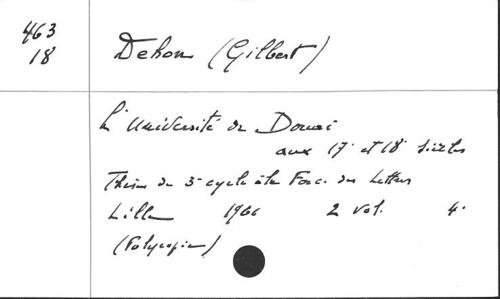 463
18
Dehon (Gilbert)
L'Université de Douai
aux 17e et 18e siècles
Thèse de 3e cycle à la Fac. des Lettres
Lille 1966 2 vol. 4°
(Polycopié)